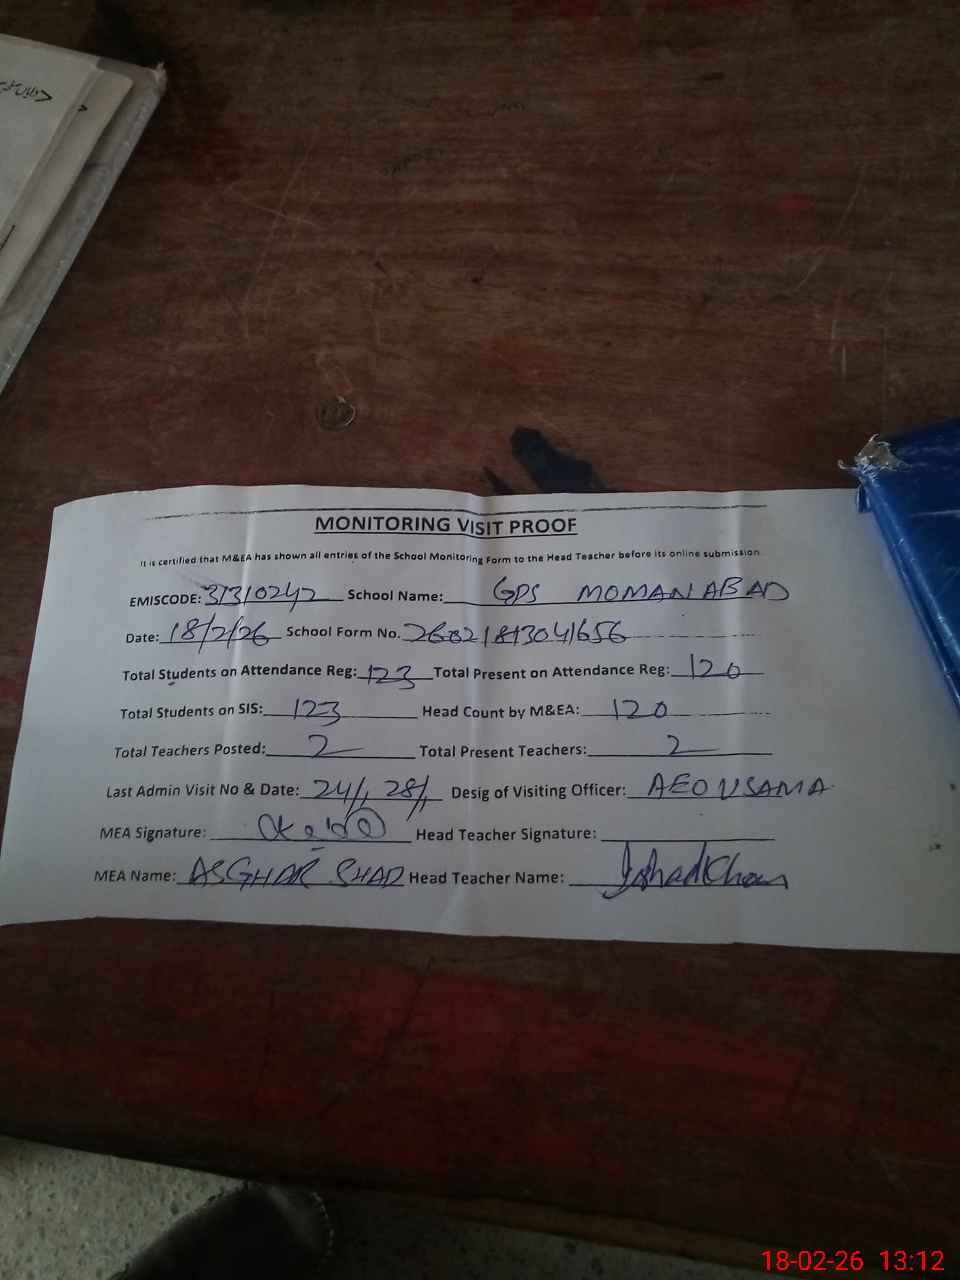 MONITORING VISIT PROOF
It is certified that M&EA has shown all entries of the School Monitoring Form to the Head Teacher before its online submission.
EMISCODE: 31310242 School Name: GPS MOMANABAD
Date: 18/2/26 School Form No. 26021813041656
Total Students on Attendance Reg: 123 Total Present on Attendance Reg: 120
Total Students on SIS: 123 Head Count by M&EA: 120
Total Teachers Posted: 2 Total Present Teachers: 2
Last Admin Visit No & Date: 24/1, 28/1 Desig of Visiting Officer: AEO USAMA
MEA Signature: Head Teacher Signature:
MEA Name: ASGHAR SHAD Head Teacher Name: Irshad Khan
18-02-26 13:12